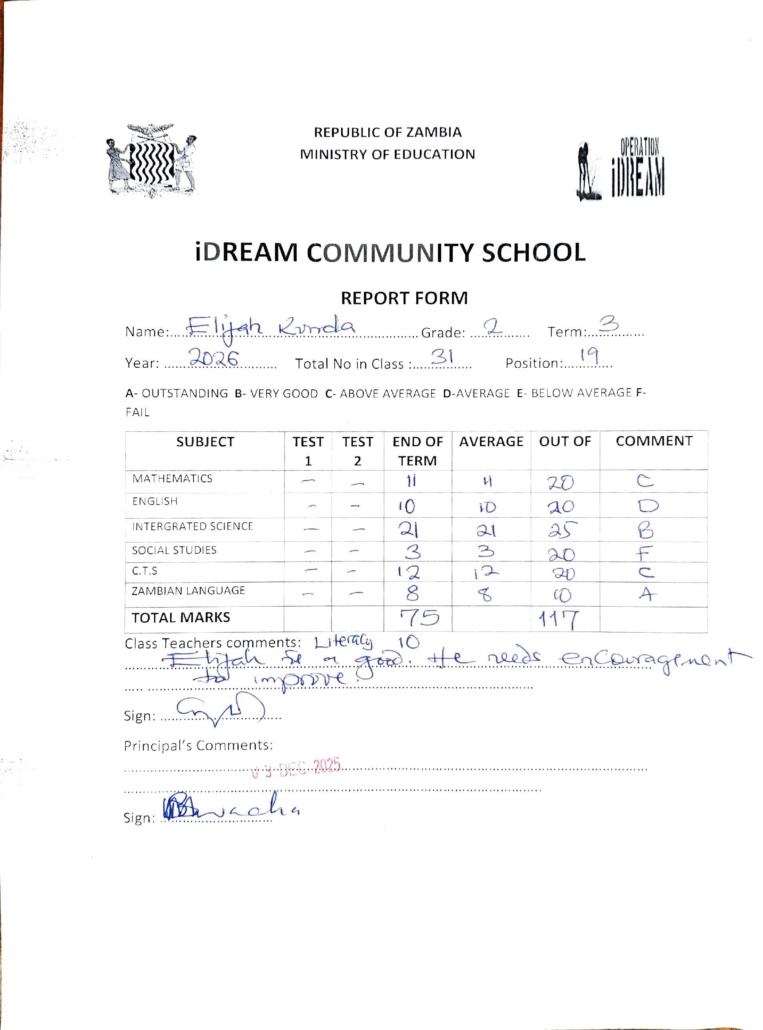 REPUBLIC OF ZAMBIA
MINISTRY OF EDUCATION
OPERATION
iDREAM
iDREAM COMMUNITY SCHOOL
REPORT FORM
Name: Elijah Kunda Grade: 2 Term: 3
Year: 2026 Total No in Class: 31 Position: 19
A- OUTSTANDING B- VERY GOOD C- ABOVE AVERAGE D-AVERAGE E- BELOW AVERAGE F-
FAIL
SUBJECT TEST 1 TEST 2 END OF TERM AVERAGE OUT OF COMMENT
MATHEMATICS – – 11 11 20 C
ENGLISH – – 10 10 20 D
INTERGRATED SCIENCE – – 21 21 25 B
SOCIAL STUDIES – – 3 3 20 F
C.T.S – – 12 12 20 C
ZAMBIAN LANGUAGE – – 8 8 10 A
TOTAL MARKS 75 117
Class Teachers comments: Literacy 10
Elijah is a good. He needs encouragement
to improve.
Sign:
Principal's Comments:
03 DEC 2025
Sign: